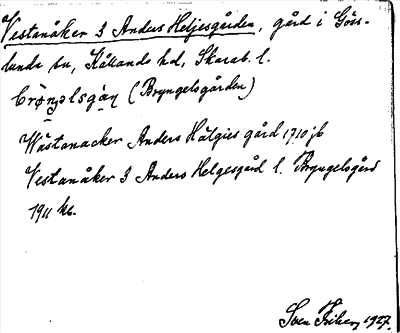 Vestanåker 3 Anders Heljesgården, gård i Göss-
lunda sn, Kållands hd, Skarab. l.
(Bryngelsgården)
Wästanacker Anders Hälgies gård 1710 jb
Vestanåker 3 Anders Helgesgård l. Bryngelsgård
1911 kb.
Sven Friberg 1927.